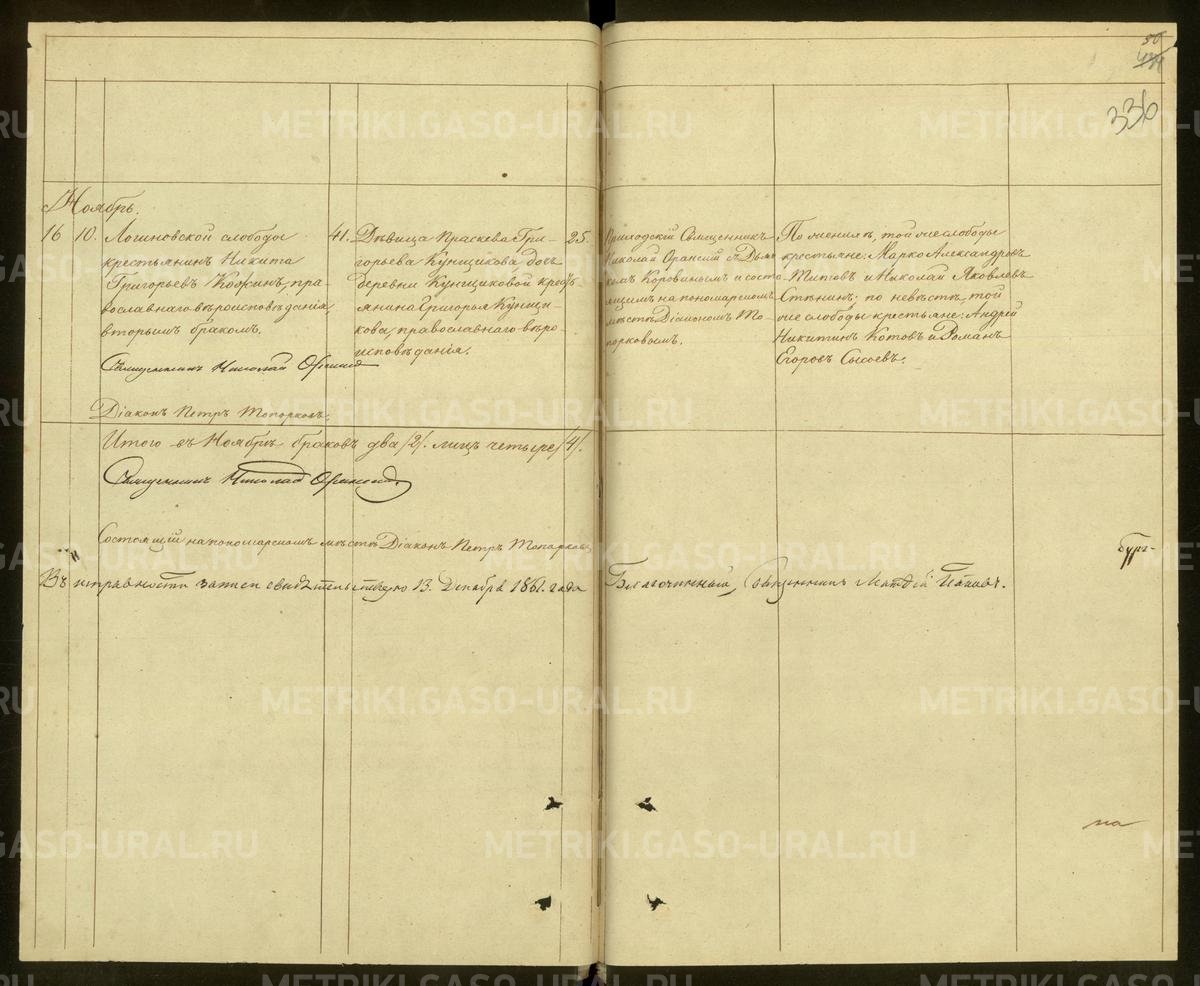 50
336
Ноябрь.
16
10.
Логиновской слободы
крестьянинъ Никита
Григорьевъ, пра-
вославнаго вѣроисповѣданія,
вторымъ бракомъ.
41.
Дѣвица Праскева Гри-
горьева Кунщикова дочь
деревни Кунщиковой крест-
янина Григорья Кунщи-
кова, православнаго вѣро-
исповѣданія.
25.
Приходскій Священникъ
Николай съ Дьяч-
комъ Коровинымъ и состо-
ящимъ на пономарскомъ
мѣстѣ Діакономъ То-
порковымъ.
По женихѣ, той же слободы
крестьяне: Марко Александровъ
Титовъ и Николай Яковлевъ
по невѣстѣ, той
же слободы крестьяне: Андрей
Никитинъ Котовъ и Романъ
Егоровъ Сысоевъ.
Священникъ Николай
Діаконъ Петръ Топорковъ.
Итого въ Ноябрѣ браковъ два /2/. лицъ четыре /4/.
Священникъ Николай
Состоящій на пономарскомъ мѣстѣ Діаконъ Петръ Топорковъ
бургъ-
Въ исправности записи свидѣтельствую 13. Декабря 1861. года
Благочинный, Священникъ
на
METRIKI.GASO-URAL.RU